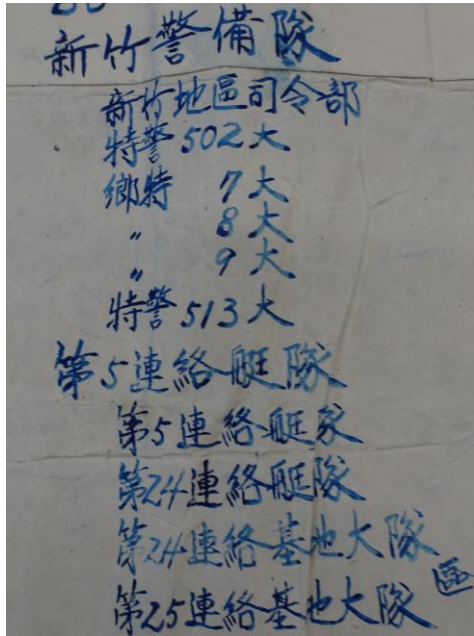 新竹警備隊
新竹地區司令部
特警502大
鄉特 7大
〃 8大
〃 9大
特警513大
第5連絡艇隊
第5連絡艇隊
第24連絡艇隊
第24連絡基地大隊
第25連絡基地大隊
區